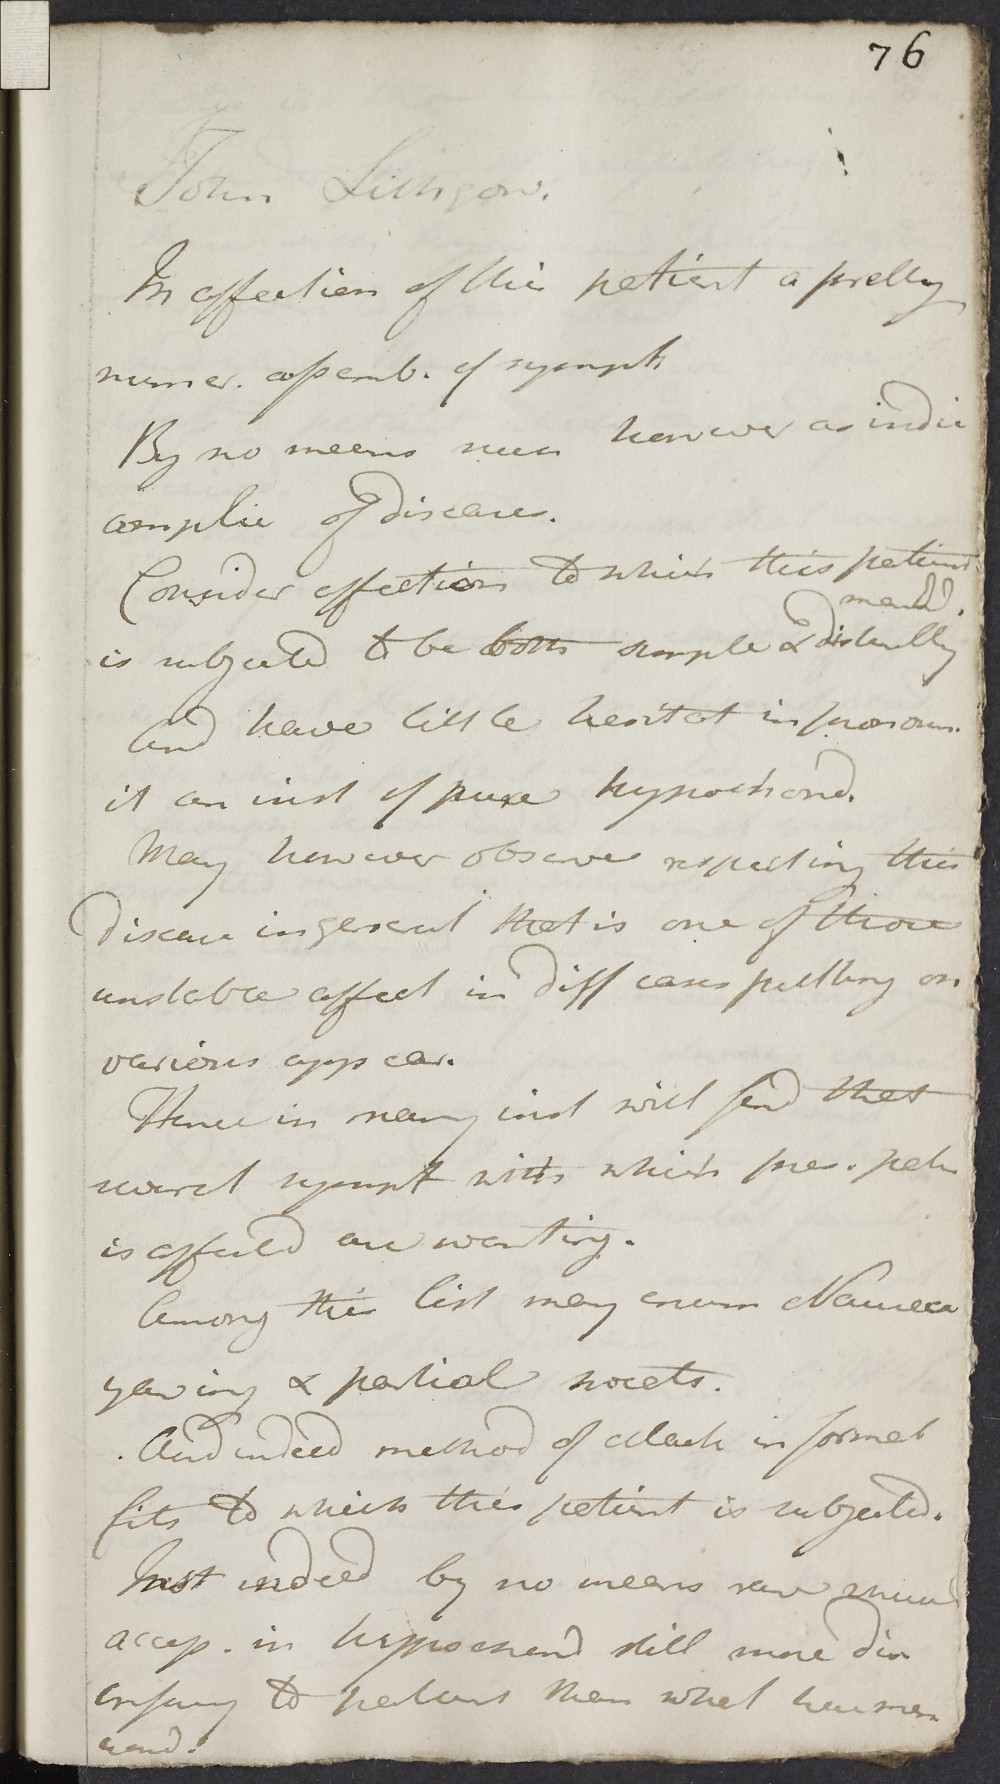 76
John Lithgow.
In affection of this patient a pretty
numer. assemb. of sympt
By no means seen however as indic
complic of diseases.
Consider affections to which this patient
mankd.
is subjected to be both simple & distinctly
And have little hesitat in pronoun.
it an inst of pure hypochond.
May however observe respecting this
Disease in general that is one of those
unstable affect in diff cases putting on
various appear.
Hence in many inst will find that
several sympt with which pres. patn
is affected are wanting.
Among this list may enum Nausea
yawing & partial sweats.
And indeed method of attack in format
fits to which this patient is subjected.
Inst indeed by no means rare where
accep. in hypochond still more dis
to patient than what have men
tiond.